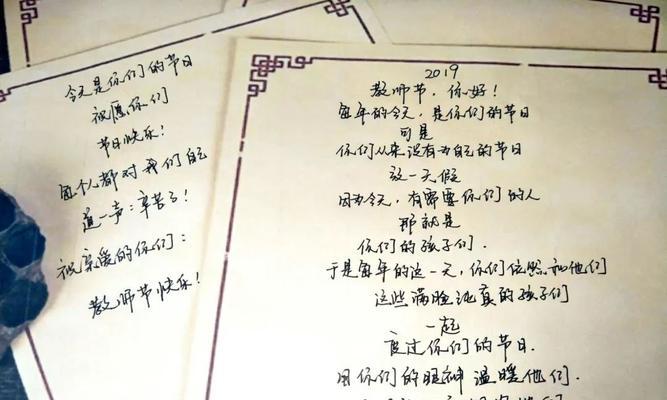 今天是你们的节日
祝愿你们
节日快乐！
每个人都对我们自己
道一声：辛苦了！
祝亲爱的你们：
教师节快乐！
2019
教师节，你好！
每年的今天，是你们的节日
可是
你们从来没有为自己的节日
放一天假
因为今天，有需要你们的人
那就是
你们的孩子们．
于是每年的这一天，你们依照和他们
这些满脸纯真的孩子们
一起
度过你们的节日．
用你们的眼神 温暖他们．